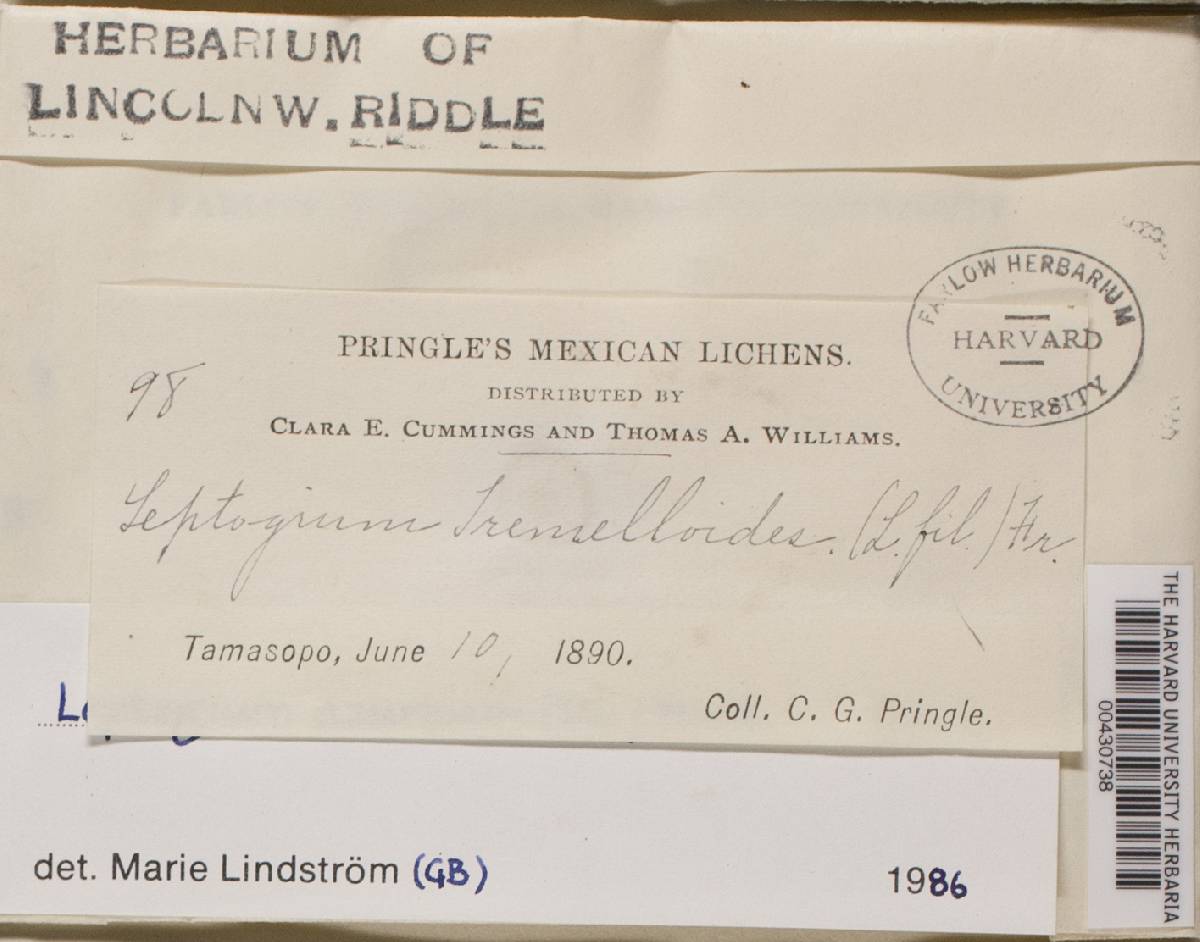 HERBARIUM OF
LINCOLN W. RIDDLE
FARLOW HERBARIUM
HARVARD
UNIVERSITY
PRINGLE'S MEXICAN LICHENS.
98
DISTRIBUTED BY
CLARA E. CUMMINGS AND THOMAS A. WILLIAMS.
Leptogium Tremelloides. (L. fil.) Fr.
Tamasopo, June 10, 1890.
Coll. C. G. Pringle.
det. Marie Lindström (GB) 1986
THE HARVARD UNIVERSITY HERBARIA
00430738